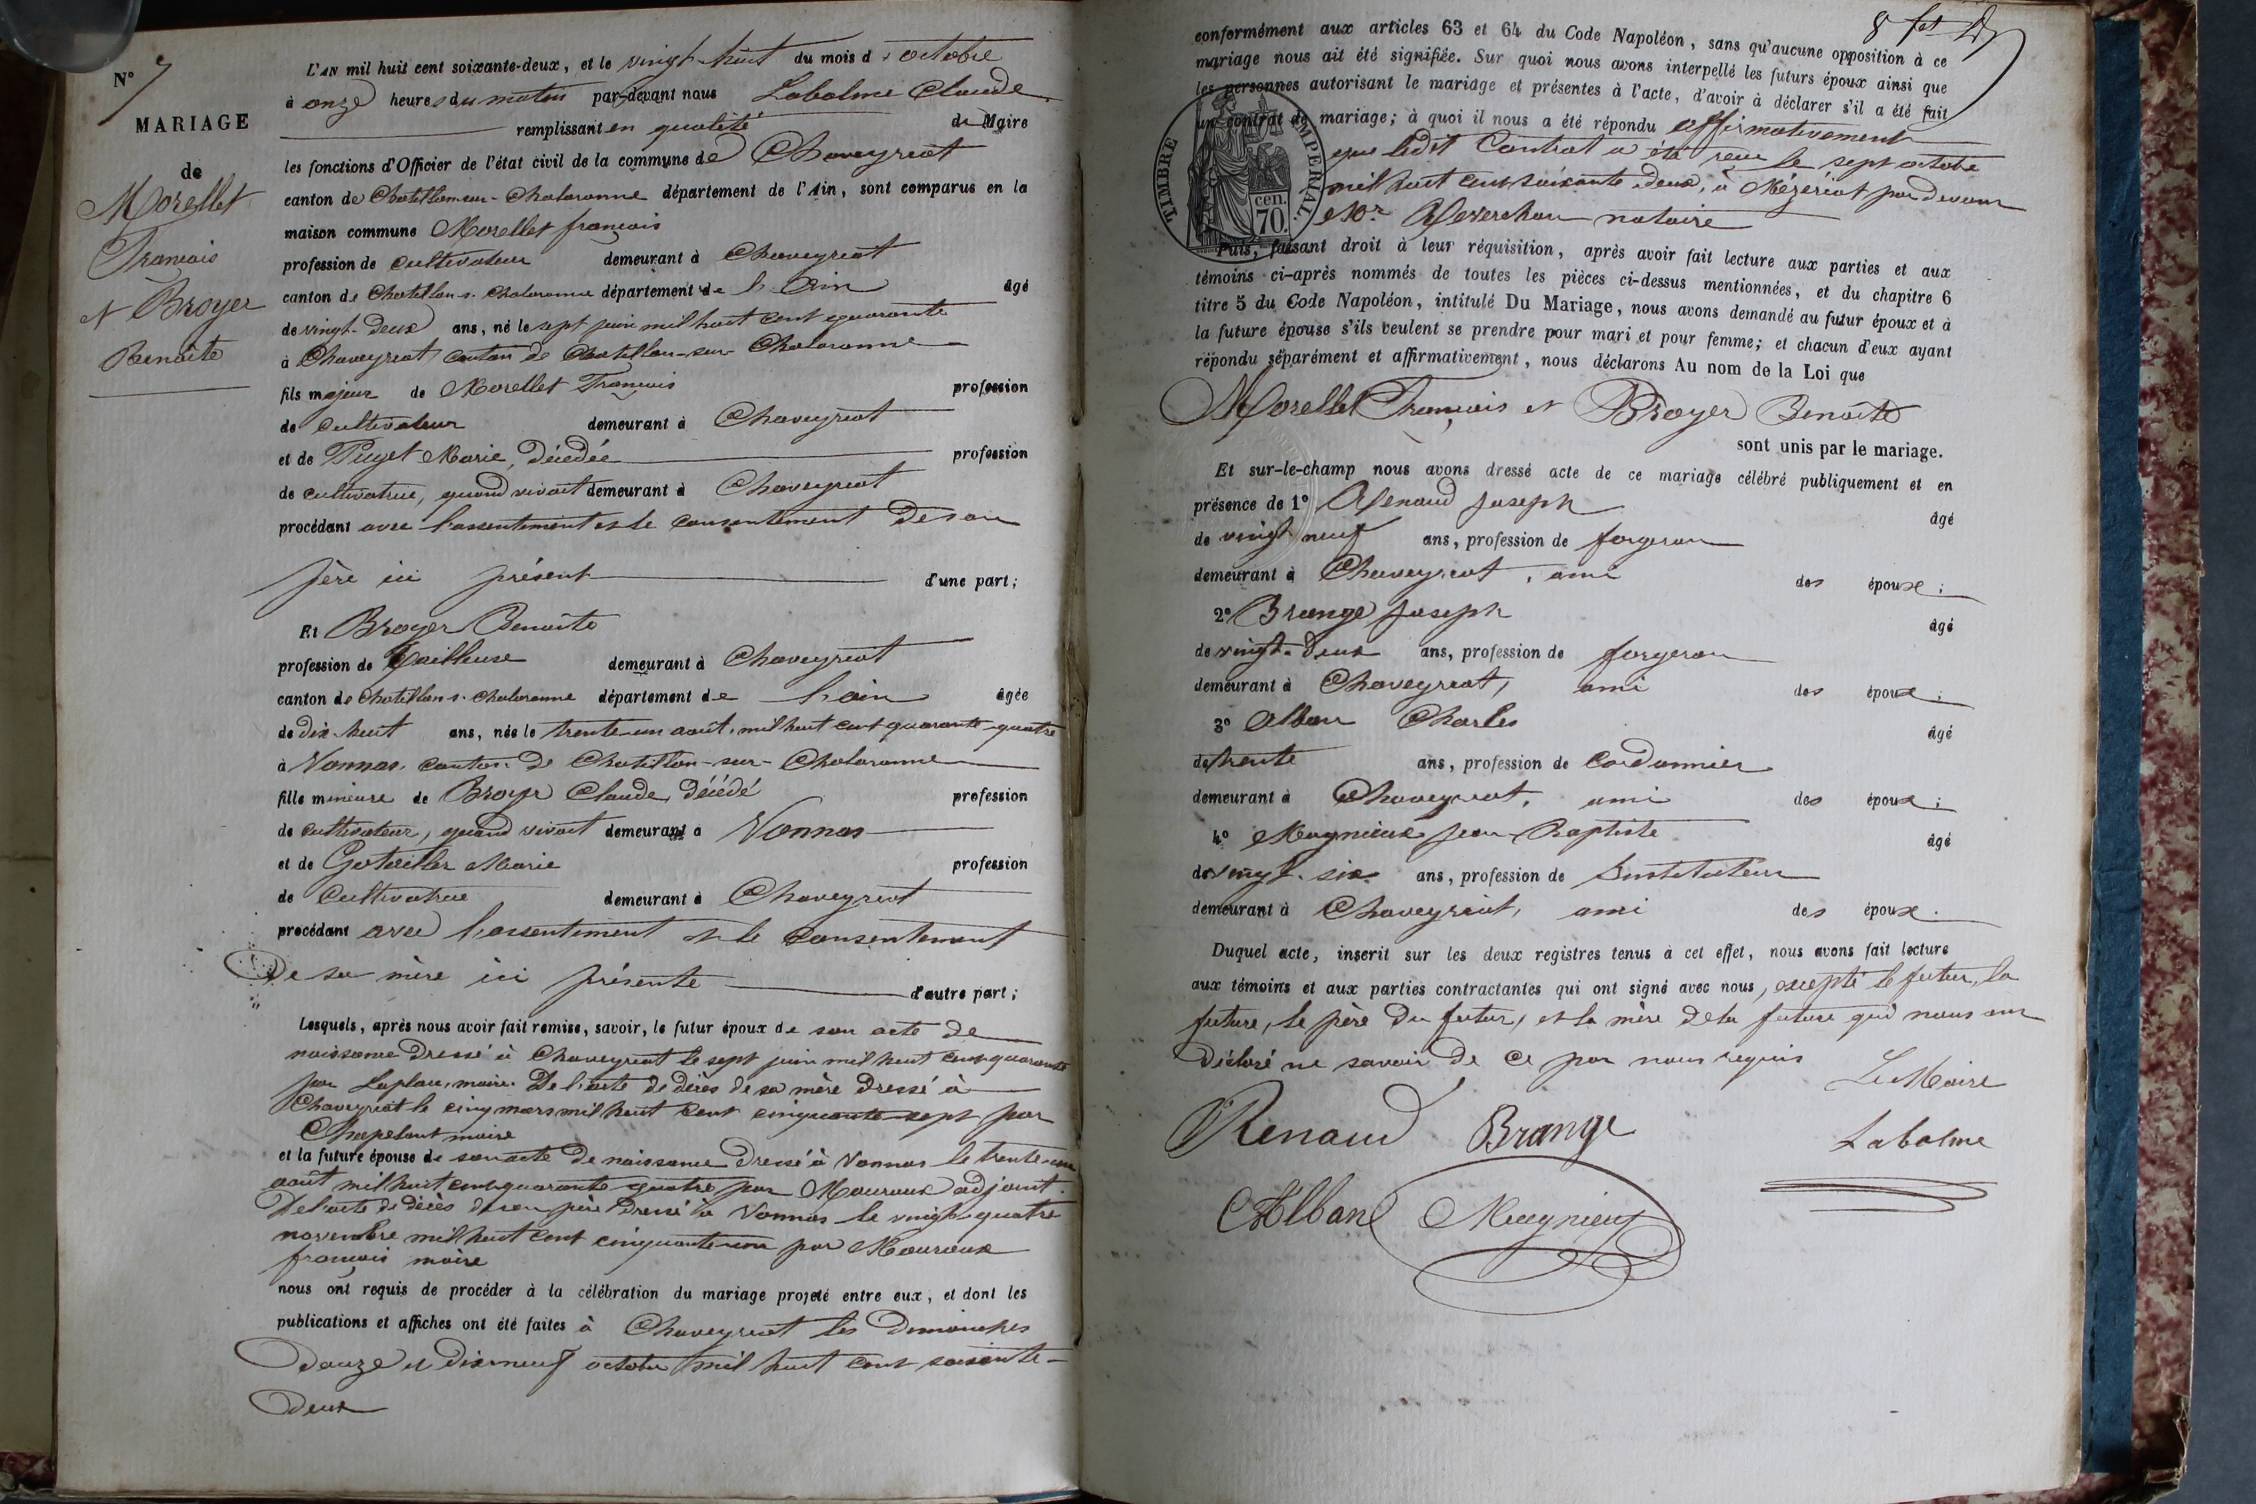 N° 7
MARIAGE
de
Morellet
François
et Broyer
Benoîte
L'AN mil huit cent soixante-deux, et le vingt-huit du mois d'octobre
à onze heures du matin par-devant nous Labalme Claude
remplissant en qualité de Maire
les fonctions d'Officier de l'état civil de la commune de Chaveyriat
canton de Chatillon-sur-Chalaronne département de l'Ain, sont comparus en la
maison commune Morellet françois
profession de cultivateur demeurant à Chaveyriat
canton de Chatillon s. Chalaronne département de l'Ain âgé
de vingt-deux ans, né le sept juin mil huit cent quarante
à Chaveyriat canton de Chatillon-sur-Chalaronne
fils majeur de Morellet François profession
de cultivateur demeurant à Chaveyriat
et de Puget Marie, décédée profession
de cultivatrice, quand vivait demeurant à Chaveyriat
procédant avec l'assentiment et le consentement de son
père ici présent d'une part;
Et Broyer Benoîte
profession de tailleuse demeurant à Chaveyriat
canton de Chatillon s. Chalaronne département de l'ain âgée
de dix-huit ans, née le trente-un août, mil huit cent quarante-quatre
à Vonnas, canton de Chatillon-sur-Chalaronne
fille mineure de Broyer Claude, décédé profession
de cultivateur, quand vivait demeurant à Vonnas
et de Marie profession
de cultivatrice demeurant à Chaveyriat
procédant avec l'assentiment et le consentement
de sa mère ici présente d'autre part;
Lesquels, après nous avoir fait remise, savoir, le futur époux de son acte de
naissance dressé à Chaveyriat le sept juin mil huit cent quarante
par Laplace, maire. De l'acte de décès de sa mère dressé à
Chaveyriat le cinq mars mil huit cent cinquante-sept par
Chapelant maire
et la future épouse de son acte de naissance dressé à Vonnas le trente-un
août mil huit cent quarante-quatre par Mouroux adjoint.
De l'acte de décès de son père dressé à Vonnas le vingt-quatre
novembre mil huit cent cinquante-un par Mouroux
françois maire
nous ont requis de procéder à la célébration du mariage projeté entre eux, et dont les
publications et affiches ont été faites à Chaveyriat les dimanches
douze et dix neuf octobre mil huit cent soixante-
deux
conformément aux articles 63 et 64 du Code Napoléon, sans qu'aucune opposition à ce
mariage nous ait été signifiée. Sur quoi nous avons interpellé les futurs époux ainsi que
les personnes autorisant le mariage et présentes à l'acte, d'avoir à déclarer s'il a été fait
un contrat de mariage; à quoi il nous a été répondu affirmativement
que ledit Contrat a été reçu le sept octobre
mil huit cent soixante deux, à Mézériat par devant
Me notaire
TIMBRE IMPERIAL.
cen.
70.
Puis, faisant droit à leur réquisition, après avoir fait lecture aux parties et aux
témoins ci-après nommés de toutes les pièces ci-dessus mentionnées, et du chapitre 6
titre 5 du Code Napoléon, intitulé Du Mariage, nous avons demandé au futur époux et à
la future épouse s'ils veulent se prendre pour mari et pour femme; et chacun d'eux ayant
répondu séparément et affirmativement, nous déclarons Au nom de la Loi que
Morellet François et Broyer Benoîte
sont unis par le mariage.
Et sur-le-champ nous avons dressé acte de ce mariage célébré publiquement et en
présence de 1° Renaud Joseph âgé
de vingt neuf ans, profession de forgeron
demeurant à Chaveyriat, ami des époux;
2° Brange Joseph âgé
de vingt-deux ans, profession de forgeron
demeurant à Chaveyriat, ami des époux;
3° Alban Charles âgé
de trente ans, profession de Cordonnier
demeurant à Chaveyriat, ami des époux;
4° Magnieux Jean-Baptiste âgé
de vingt-six ans, profession de Instituteur
demeurant à Chaveyriat, ami des époux.
Duquel acte, inscrit sur les deux registres tenus à cet effet, nous avons fait lecture
aux témoins et aux parties contractantes qui ont signé avec nous, excepté le futur, la
future, le père du futur, et la mère de la future qui nous ont
déclaré ne savoir de ce par nous requis
Le Maire
Renaud Brange Labalme
C Alban Magnieux